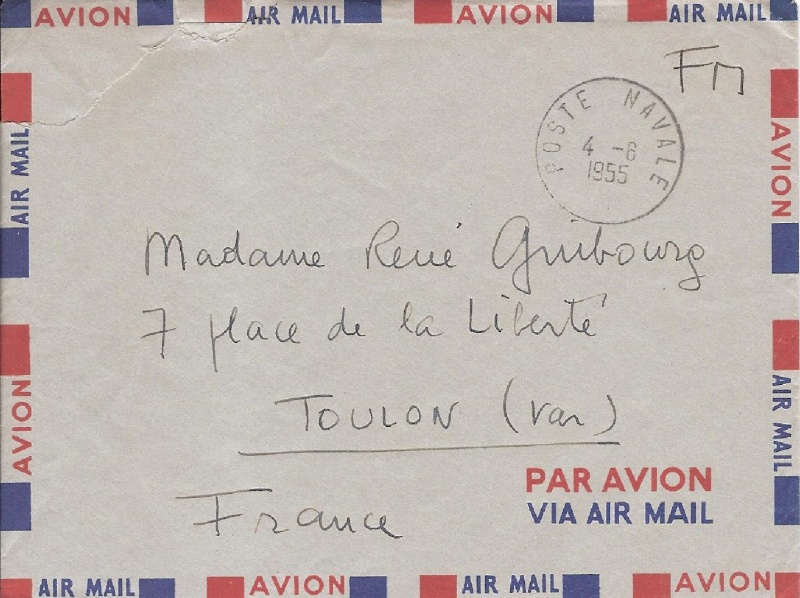 AVION AIR MAIL AVION AIR MAIL
FM
POSTE NAVALE
4 -6
1955
AIR MAIL
AVION
Madame René Guibourg
7 place de la Liberté
TOULON (Var)
France
AVION
AIR MAIL
PAR AVION
VIA AIR MAIL
AIR MAIL AVION AIR MAIL AVION